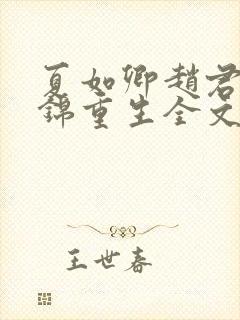 夏如卿趙君
錦重生全文
王世春